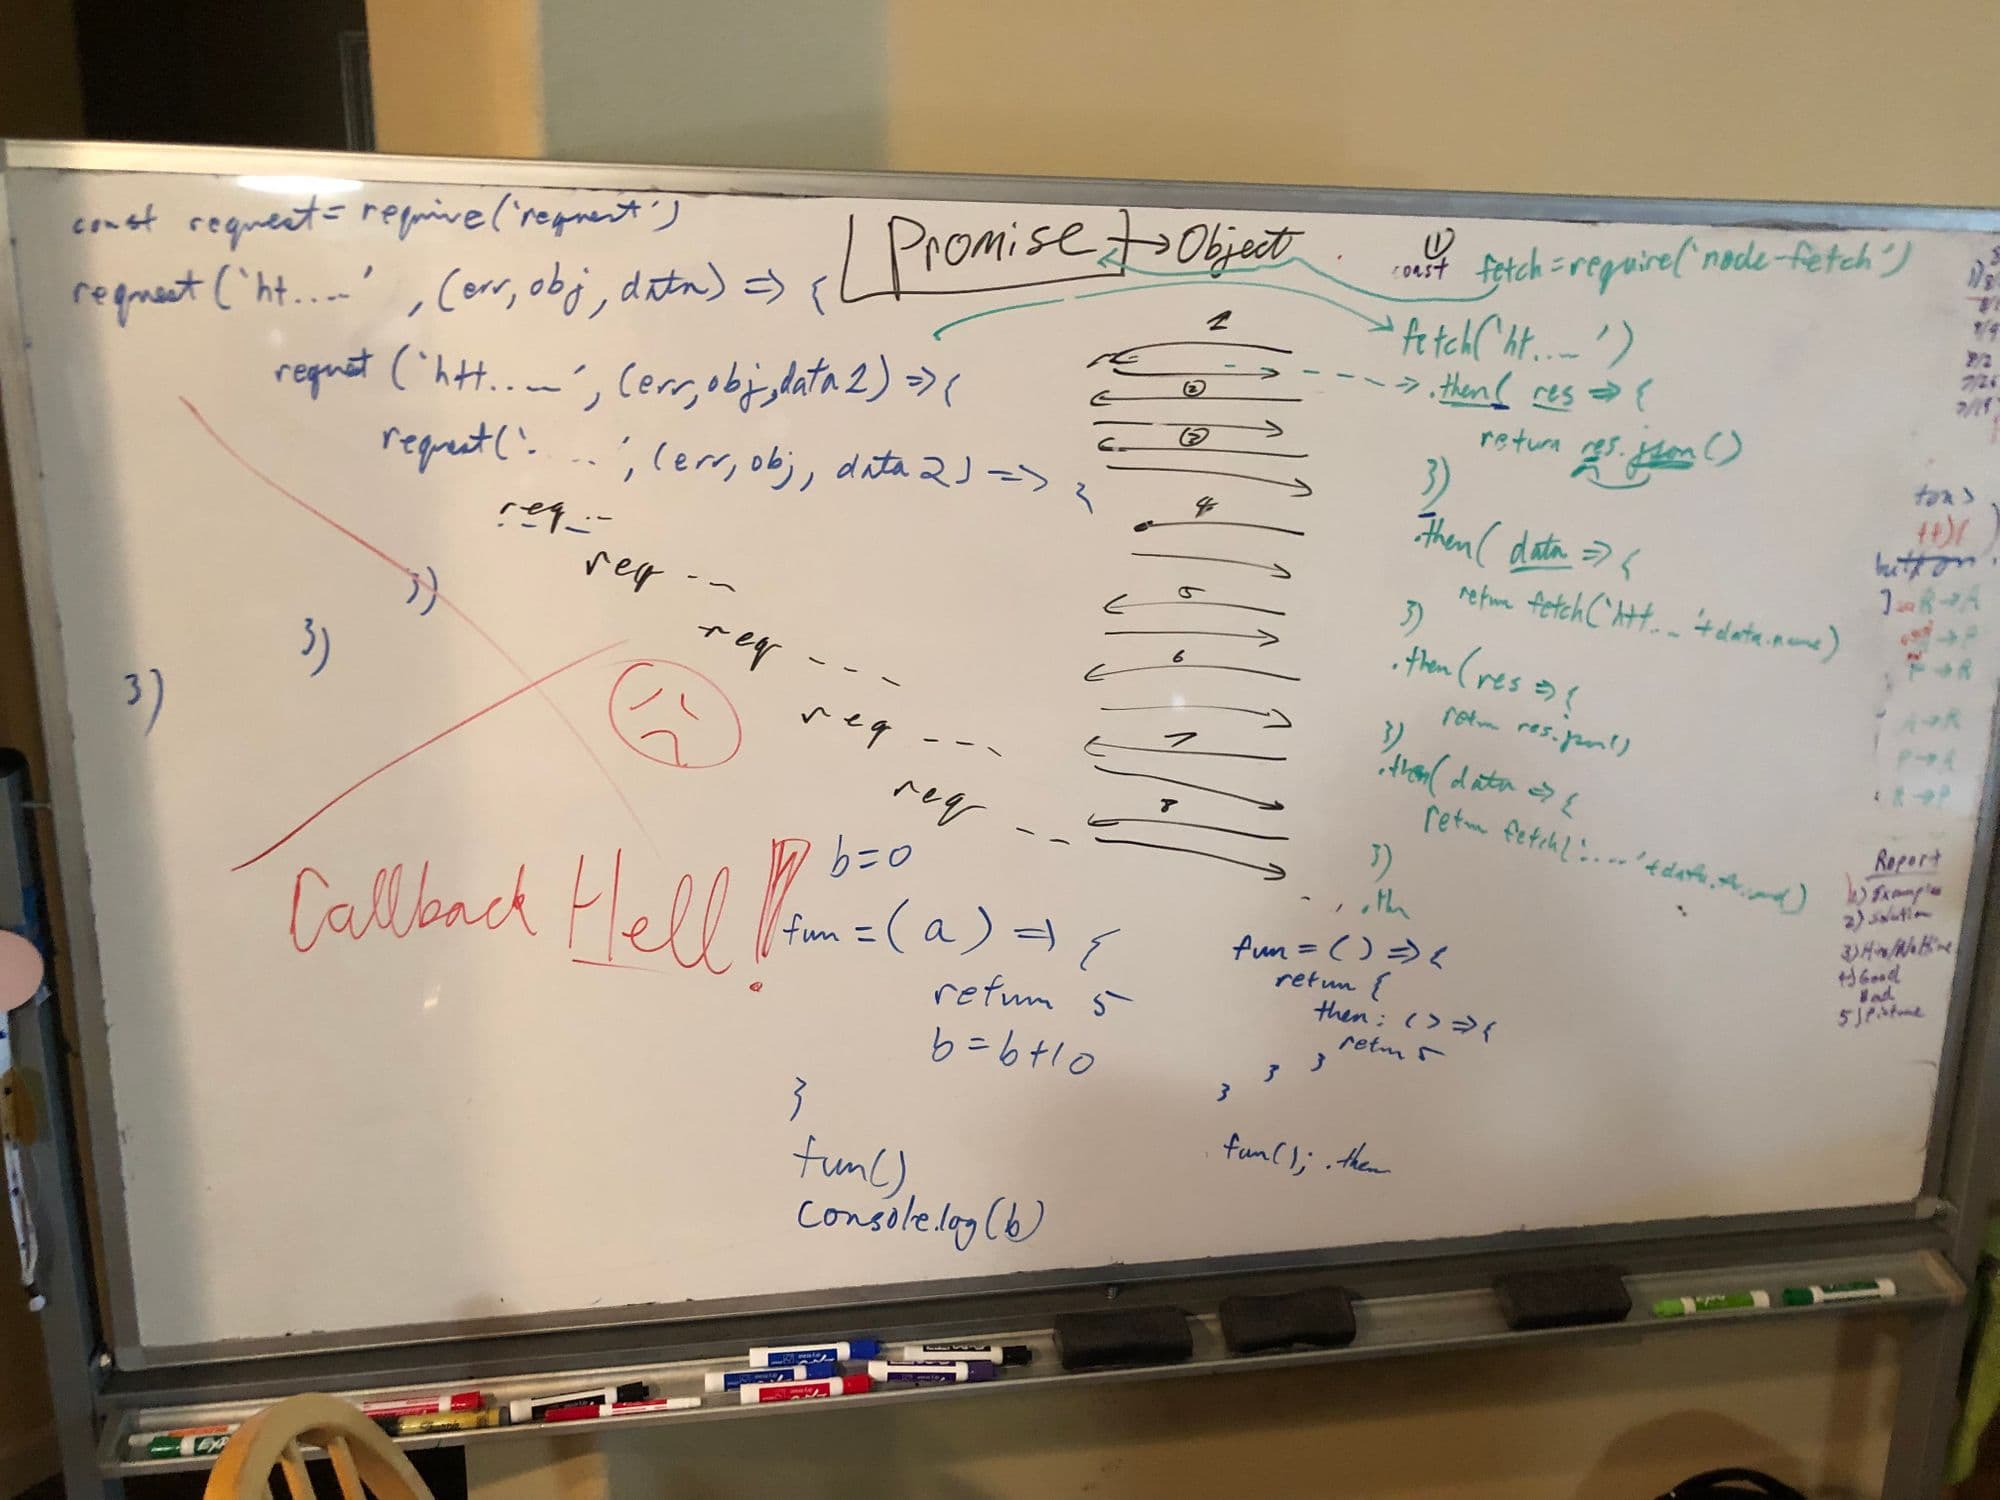 const request = require('request')
request('ht....', (err, obj, data) => {
request('htt....', (err, obj, data2) => {
request('....', (err, obj, data2) => {
req ...
req --
req ---
req ---
req --
})
})
})
Callback Hell!
Promise → Object
1
2
3
4
5
6
7
8
b=0
fun = (a) => {
return 5
b=b+10
}
fun()
console.log(b)
①
const fetch = require('node-fetch')
fetch('ht...')
.then( res => {
return res.json()
})
.then( data => {
return fetch('htt...'+data.name)
})
.then( res => {
retn res.json()
})
.then( data => {
retn fetch('....'+data.
})
...th
fun = () => {
return {
then: () => {
retn 5
}
}
}
fun(); .then
button
R→A
→P
F→R
A→R
P→A
R→P
Report
1) Examples
2) Solution
4) Good
Bad
5) Picture